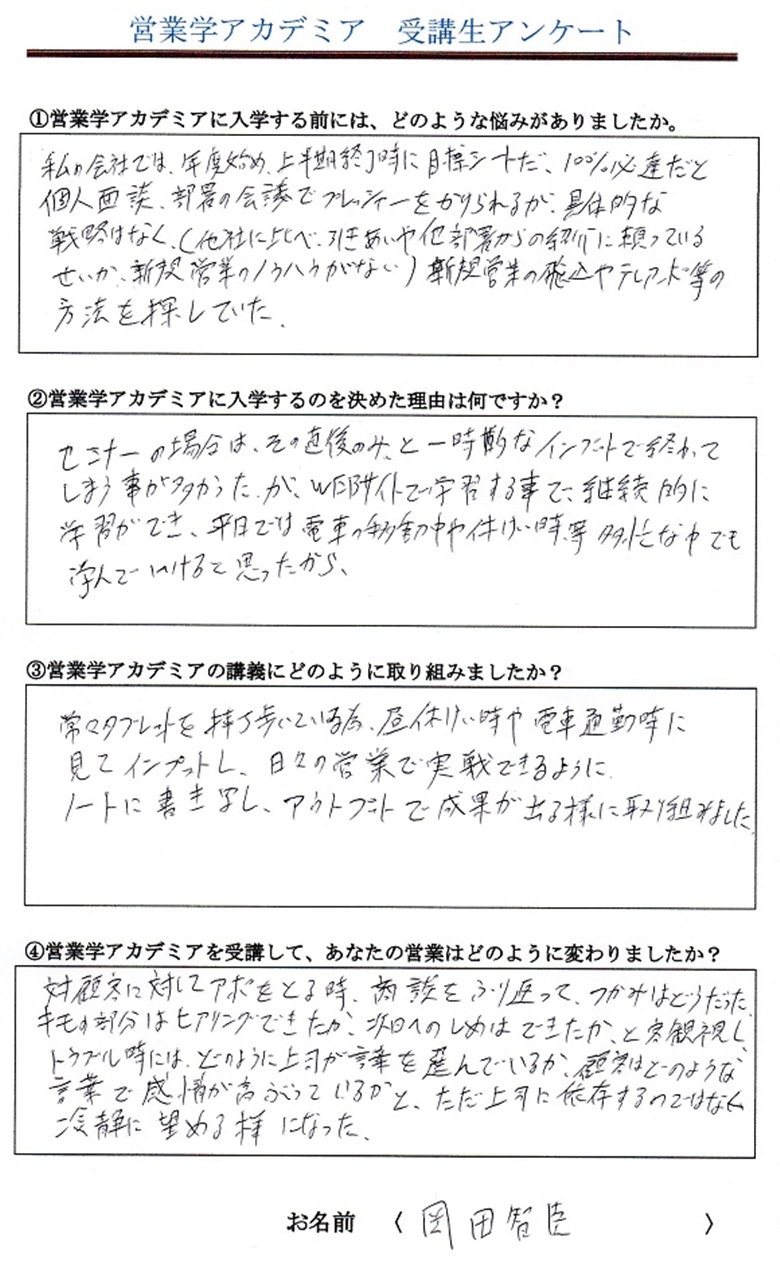 営業学アカデミア　受講生アンケート
①営業学アカデミアに入学する前には、どのような悩みがありましたか。
私の会社では、年度始め、上半期終了時に目標シートだ、100%必達だと
個人面談、部署の会議でプレッシャーをかけられるが、具体的な
戦略はなく、(他社に比べ、引きあいや他部署からの紹介に頼っている
せいか、新規営業のノウハウがない)新規営業の飛込やテレアポ等の
方法を探していた。
②営業学アカデミアに入学するのを決めた理由は何ですか？
セミナーの場合は、その直後のみ、と一時的なインプットで終わって
しまう事が多かった。が、WEBサイトで学習する事で、継続的に
学習ができ、平日では電車の移動中や休けい時等多忙な中でも
学んでいけると思ったから、
③営業学アカデミアの講義にどのように取り組みましたか？
常々タブレットを持ち歩いている為、昼休けい時や電車通勤時に
見てインプットし、日々の営業で実戦できるように
ノートに書き写し、アウトプットで成果が出る様に取り組みました。
④営業学アカデミアを受講して、あなたの営業はどのように変わりましたか？
対顧客に対してアポをとる時、商談をふり返って、つかみはどうだった、
キモの部分はヒアリングできたか、次回へのしめはできたか、と客観視し
トラブル時には、どのように上司が言葉を選んでいるか、顧客はどのような
言葉で感情が高ぶっているかと、ただ上司に依存するのではなく
冷静に望める様になった。
お名前　〈　岡田智臣　〉